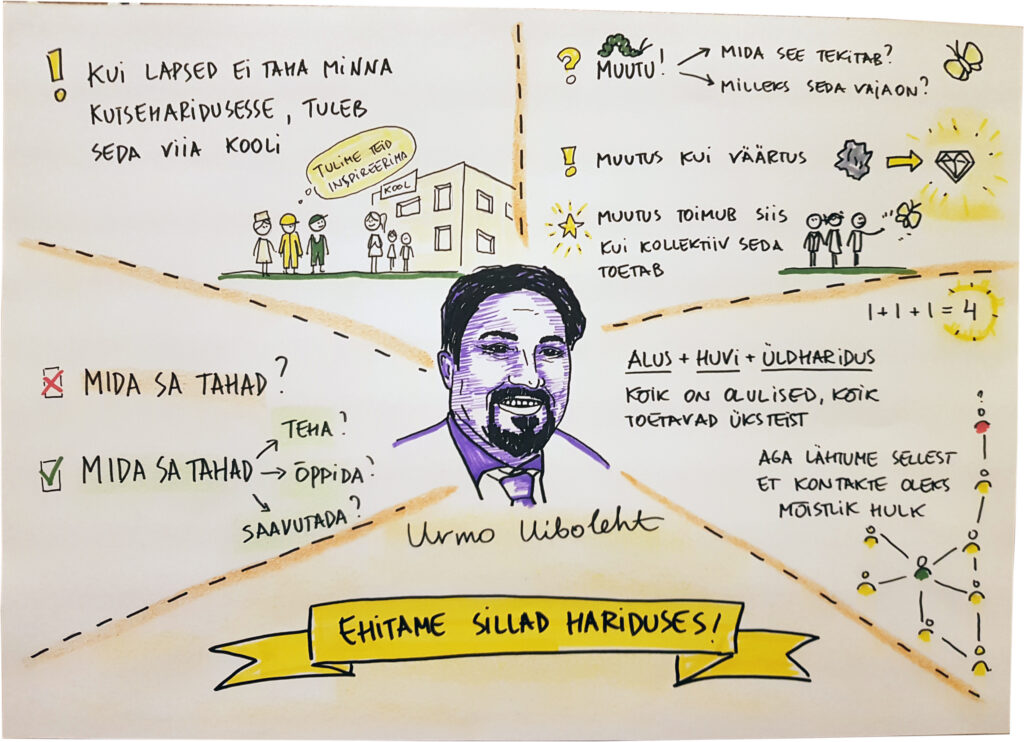 ! KUI LAPSED EI TAHA MINNA
KUTSEHARIDUSESSE, TULEB
SEDA VIIA KOOLI
TULIME TEID
INSPIREERIMA
KOOL
? MUUTU!
MIDA SEE TEKITAB?
MILLEKS SEDA VAJA ON?
! MUUTUS KUI VÄÄRTUS
MUUTUS TOIMUB SIIS
KUI KOLLEKTIIV SEDA
TOETAB
MIDA SA TAHAD?
MIDA SA TAHAD
TEHA?
ÕPPIDA?
SAAVUTADA?
1+1+1=4
ALUS + HUVI + ÜLDHARIDUS
KÕIK ON OLULISED, KÕIK
TOETAVAD ÜKSTEIST
AGA LÄHTUME SELLEST
ET KONTAKTE OLEKS
MÕISTLIK HULK
Urmo Uiboleht
EHITAME SILLAD HARIDUSES!